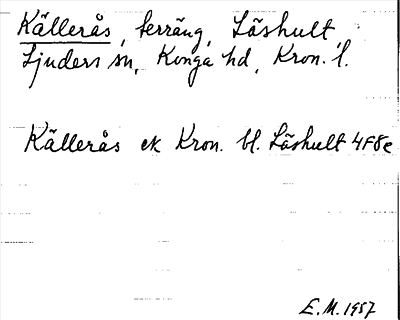 Källerås, terräng, Låshult
Ljuders sn, Konga hd, Kron. l.
Källerås ek Kron. bl. Låshult 4F8e
E.M. 1957